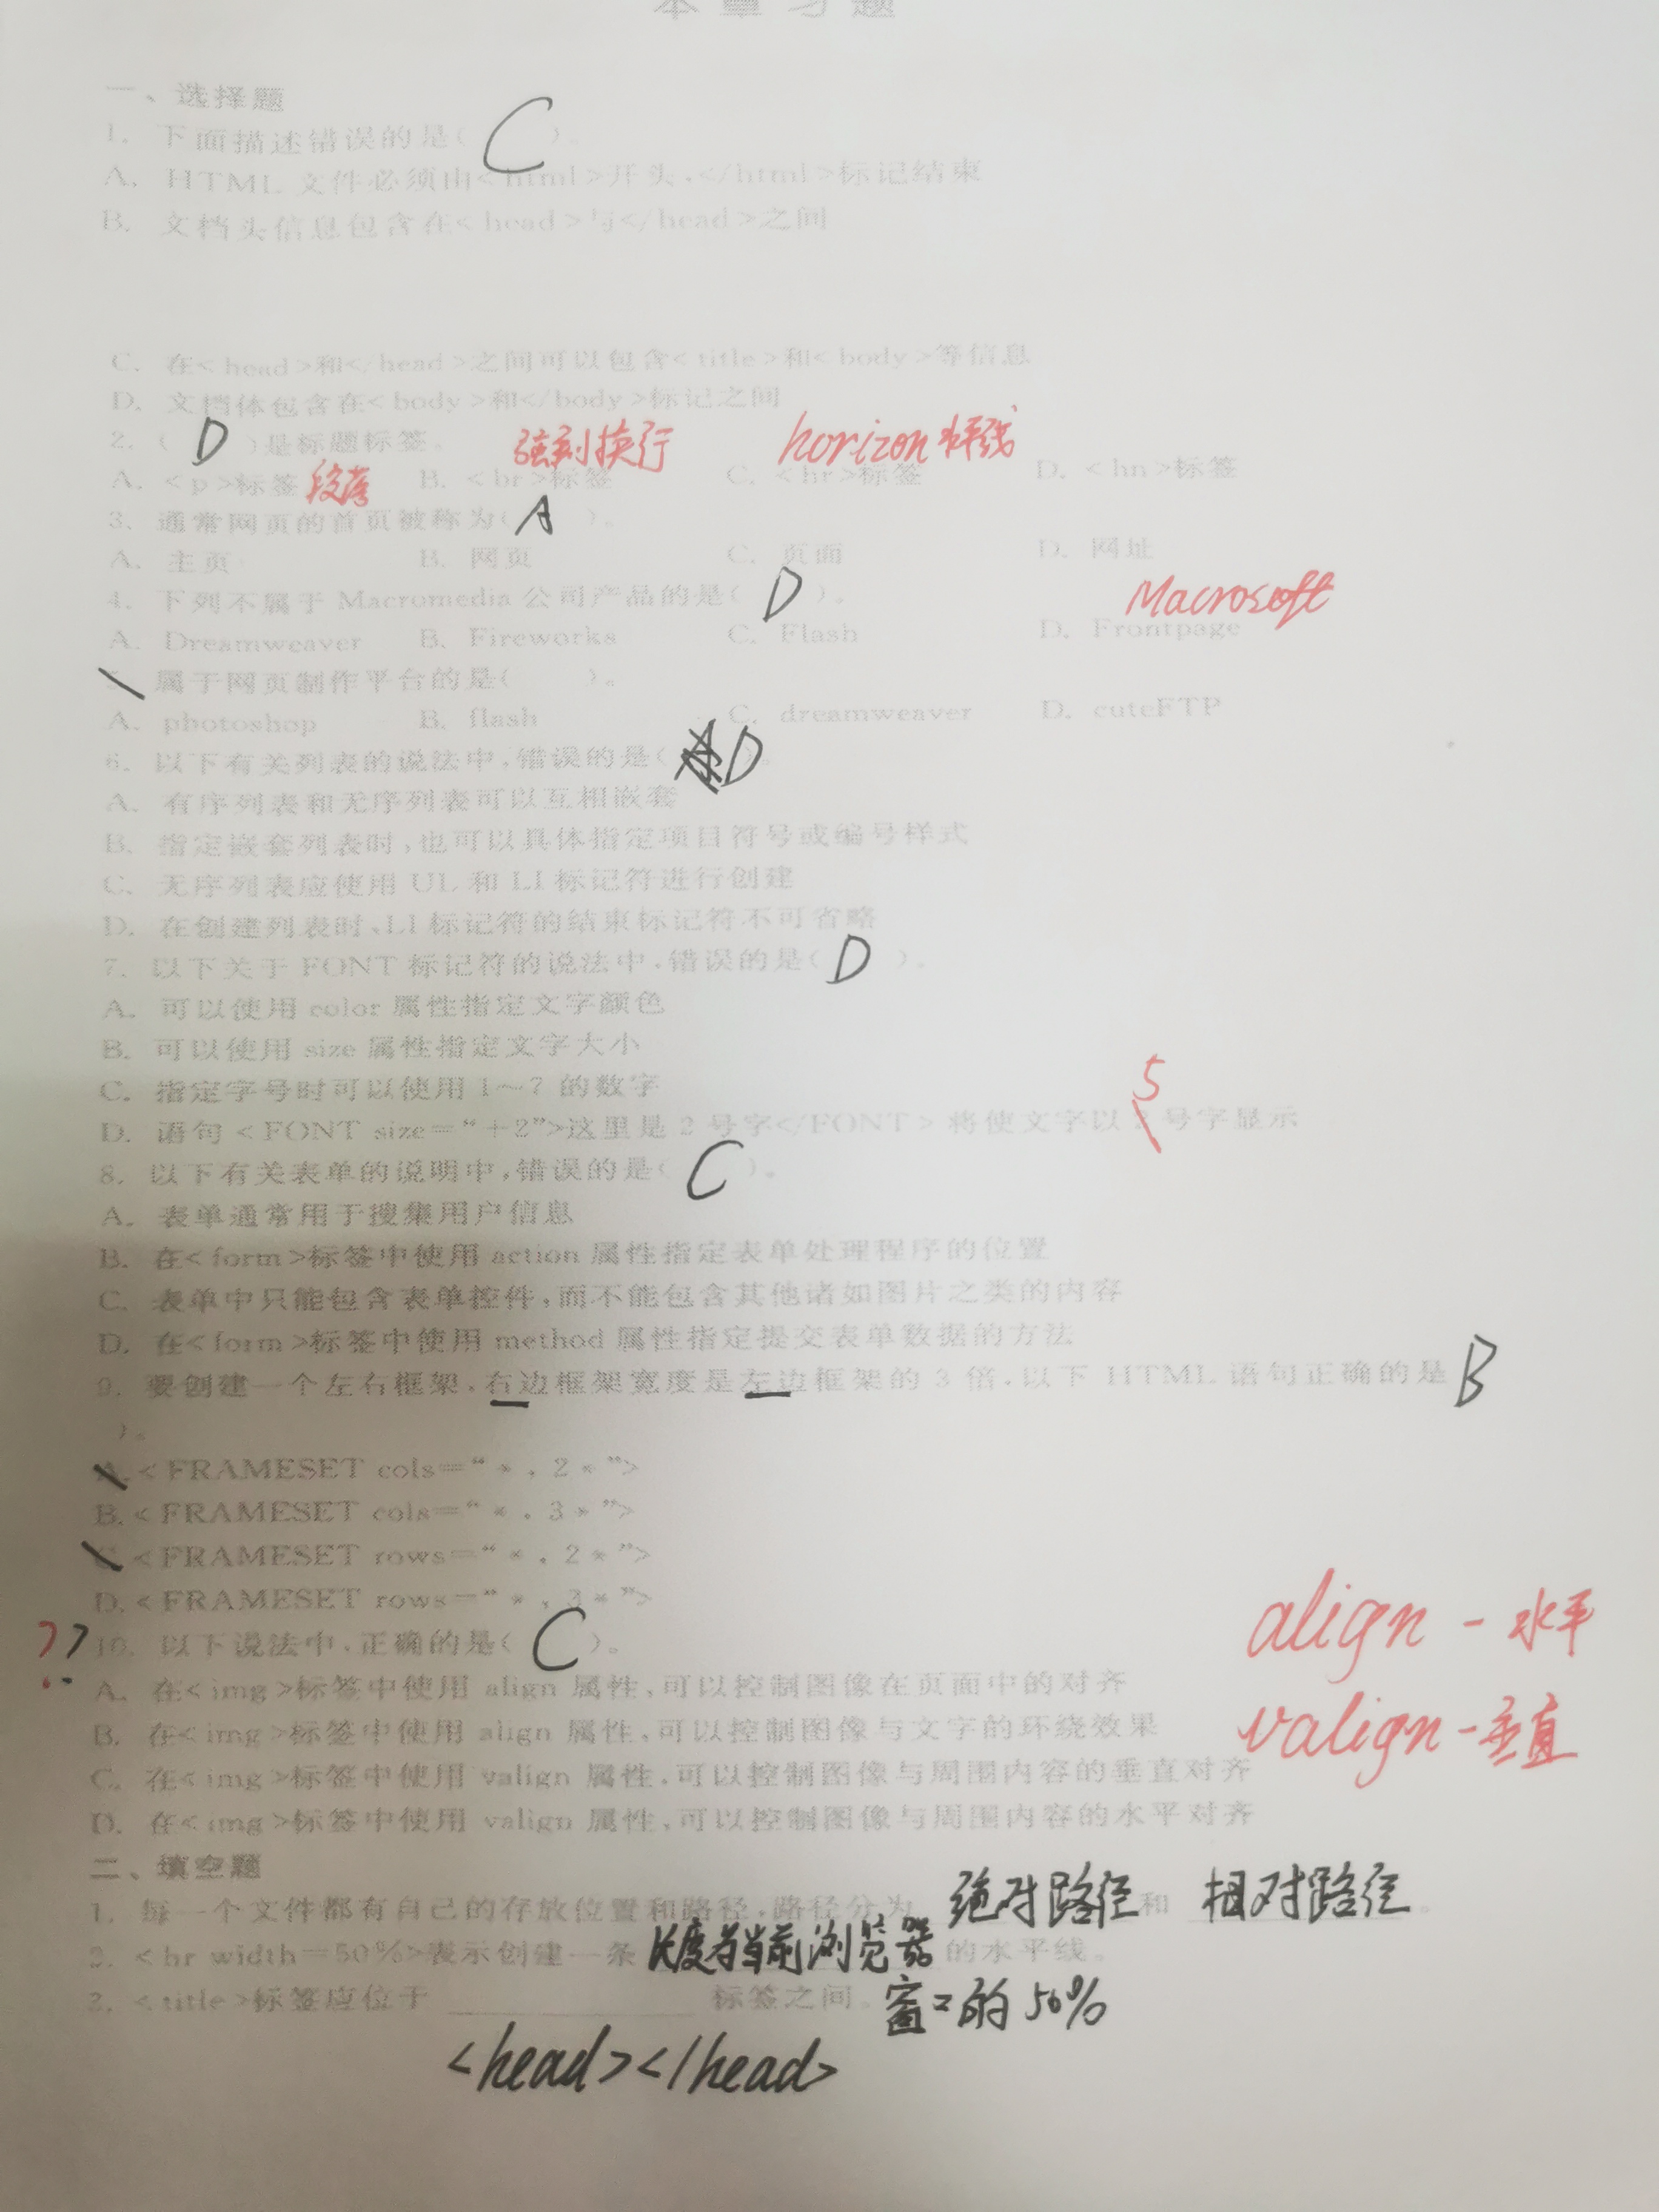 本章习题
一、选择题
1. 下面描述错误的是( C )。
A. HTML 文件必须由<html>开头,</html>标记结束
B. 文档头信息包含在<head>与</head>之间
C. 在<head>和</head>之间可以包含<title>和<body>等信息
D. 文档体包含在<body>和</body>标记之间
2. ( D )是标题标签。 强制换行 horizon 水平线
A. <p>标签 段落 B. <br>标签 C. <hr>标签 D. <hn>标签
3. 通常网页的首页被称为( A )。
A. 主页 B. 网页 C. 页面 D. 网址
4. 下列不属于 Macromedia 公司产品的是( D )。 Macrosoft
A. Dreamweaver B. Fireworks C. Flash D. Frontpage
5. 属于网页制作平台的是( )。
A. photoshop B. flash C. dreamweaver D. cuteFTP
6. 以下有关列表的说法中,错误的是( D )。
A. 有序列表和无序列表可以互相嵌套
B. 指定嵌套列表时,也可以具体指定项目符号或编号样式
C. 无序列表应使用 UL 和 LI 标记符进行创建
D. 在创建列表时,LI 标记符的结束标记符不可省略
7. 以下关于 FONT 标记符的说法中,错误的是( D )。
A. 可以使用 color 属性指定文字颜色
B. 可以使用 size 属性指定文字大小
C. 指定字号时可以使用 1～7 的数字
5
D. 语句 <FONT size="+2">这里是 2 号字</FONT> 将使文字以 2 号字显示
8. 以下有关表单的说明中,错误的是( C )。
A. 表单通常用于搜集用户信息
B. 在<form>标签中使用 action 属性指定表单处理程序的位置
C. 表单中只能包含表单控件,而不能包含其他诸如图片之类的内容
D. 在<form>标签中使用 method 属性指定提交表单数据的方法
9. 要创建一个左右框架,右边框架宽度是左边框架的 3 倍,以下 HTML 语句正确的是 B
)。
A. <FRAMESET cols="*,2*">
B. <FRAMESET cols="*,3*">
C. <FRAMESET rows="*,2*">
D. <FRAMESET rows="*,3*">
?? 10. 以下说法中,正确的是( C )。 align - 水平
A. 在<img>标签中使用 align 属性,可以控制图像在页面中的对齐
B. 在<img>标签中使用 align 属性,可以控制图像与文字的环绕效果 valign - 垂直
C. 在<img>标签中使用 valign 属性,可以控制图像与周围内容的垂直对齐
D. 在<img>标签中使用 valign 属性,可以控制图像与周围内容的水平对齐
二、填空题
1. 每一个文件都有自己的存放位置和路径,路径分为 绝对路径 和 相对路径 。
2. <hr width=50%>表示创建一条 长度为当前浏览器 的水平线。
窗口的50%
2. <title>标签应位于 标签之间。
<head></head>